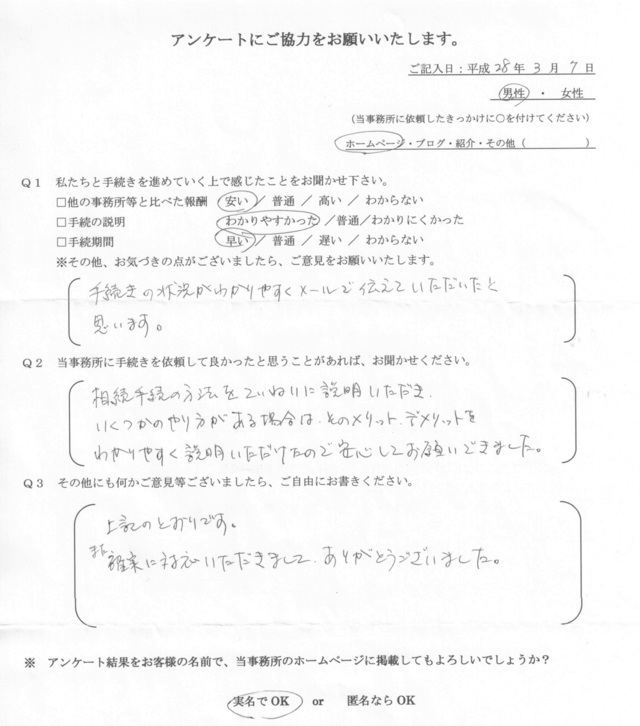 アンケートにご協力をお願いいたします。
ご記入日：平成 28 年 3 月 7 日
男性 ・ 女性
（当事務所に依頼したきっかけに○を付けてください）
ホームページ・ブログ・紹介・その他（　　　　　）
Q１　私たちと手続きを進めていく上で感じたことをお聞かせ下さい。
□他の事務所等と比べた報酬　安い ／ 普通 ／ 高い ／ わからない
□手続の説明　わかりやすかった ／普通／わかりにくかった
□手続期間　早い ／ 普通 ／ 遅い ／ わからない
※その他、お気づきの点がございましたら、ご意見をお願いいたします。
手続きの状況がわかりやすくメールで伝えていただいたと
思います。
Q２　当事務所に手続きを依頼して良かったと思うことがあれば、お聞かせください。
相続手続の方法をていねいに説明いただき、
いくつかのやり方がある場合は、そのメリット、デメリットを
わかりやすく説明いただけたので安心してお願いできました。
Q３　その他にも何かご意見等ございましたら、ご自由にお書きください。
上記のとおりです。
また 確実に対応いただきまして、ありがとうございました。
※　アンケート結果をお客様の名前で、当事務所のホームページに掲載してもよろしいでしょうか？
実名で OK　or　匿名なら OK